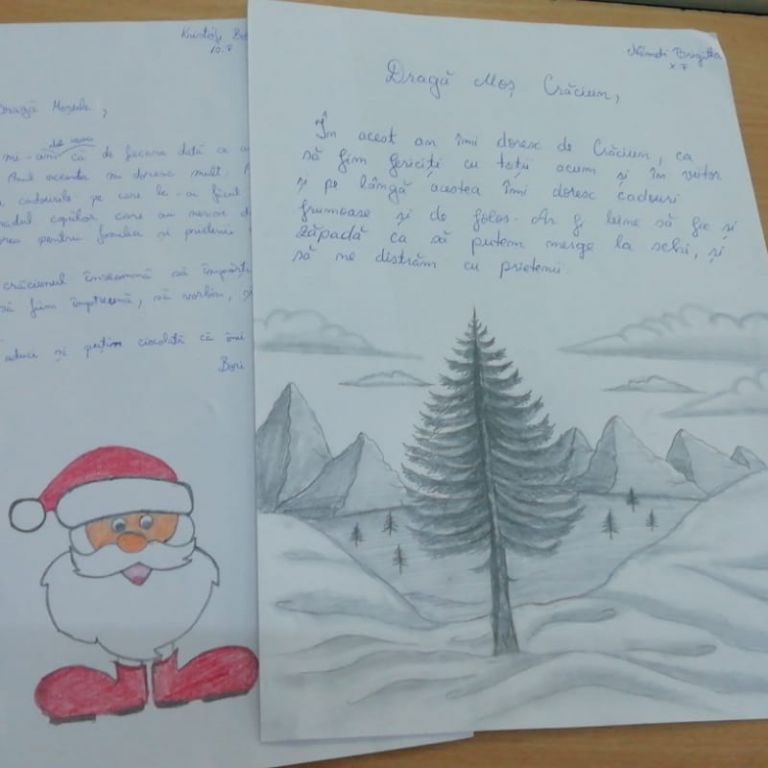 Kristóf Bo
10.F
Dragă Moșule,
de mai
mi-am ca de fiecare dată ca a
Anul acesta nu doresc mult.
cadourile pe care le-ai făcut
copiilor care au nevoie d
pentru familia si prietenii
crăciunul înseamnă să împărți
să fim împreună, să vorbim, s
aduci și puțin ciocolată că îmi
Bori
Németi Brigitta
X F
Dragă Moș Crăciun,
În acest an îmi doresc de Crăciun, ca
să fim fericiți cu toții acum și în viitor
și pe lângă acestea îmi doresc cadouri
frumoase și de folos. Ar fi bine să fie și
zăpadă ca să putem merge la schi, și
să ne distrăm cu prietenii.